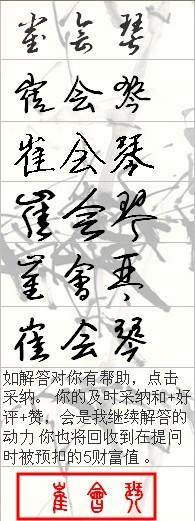 崔会琴
崔会琴
崔会琴
崔会琴
崔會琴
崔会琴
如解答对你有帮助，点击
采纳。 你的及时采纳和+好
评+赞，会是我继续解答的
动力 你也将回收到在提问
时被预扣的5财富值 。
崔會琴